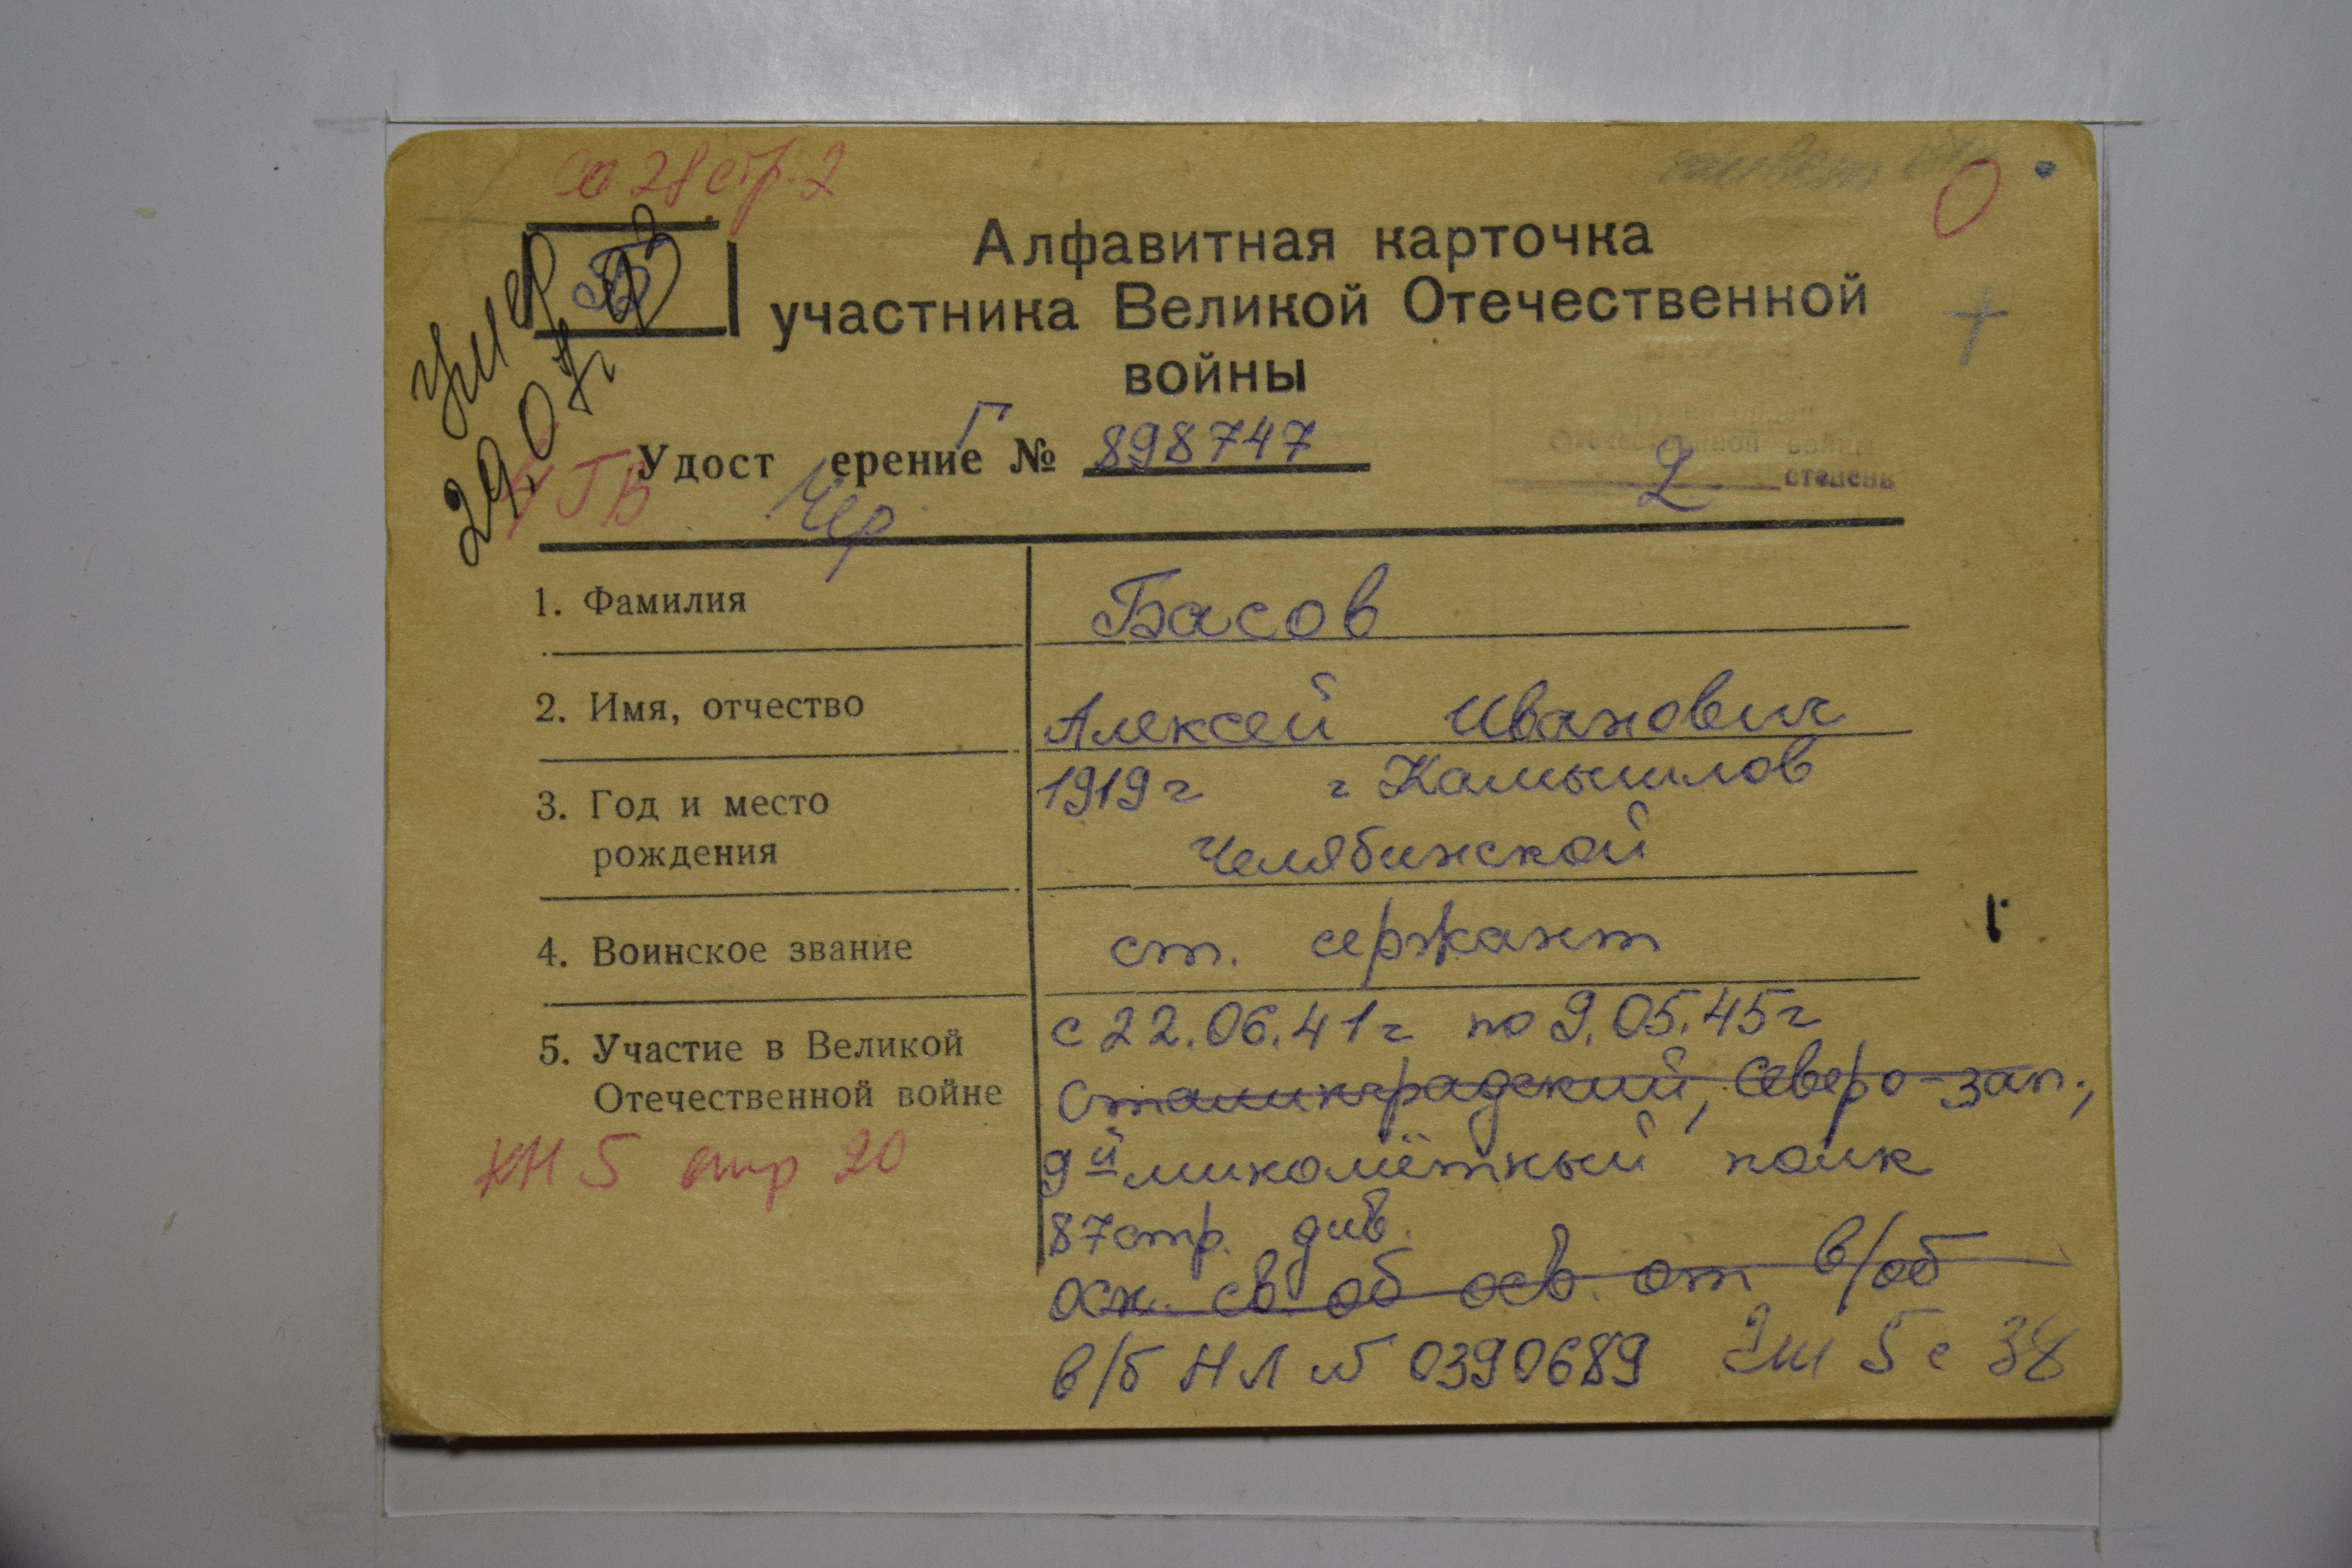 28 стр. 2
О
Б
Умер
29.07.93
Алфавитная карточка
участника Великой Отечественной
войны
Удост ерение Г № 898747
ГВ
Чер
Отечественной войны
2 степень
1. Фамилия Басов
2. Имя, отчество Алексей Иванович
3. Год и место 1919 г г Камышлов
рождения Челябинской
4. Воинское звание ст. сержант
5. Участие в Великой с 22.06.41 г по 9.05.45 г
Отечественной войне Сталинградский, Северо-зап.,
КН 5 стр 20 9й миномётный полк
87 стр. див.
осн. св. об осв. от в/об
в/б НЛ № 0390689 5 с 38